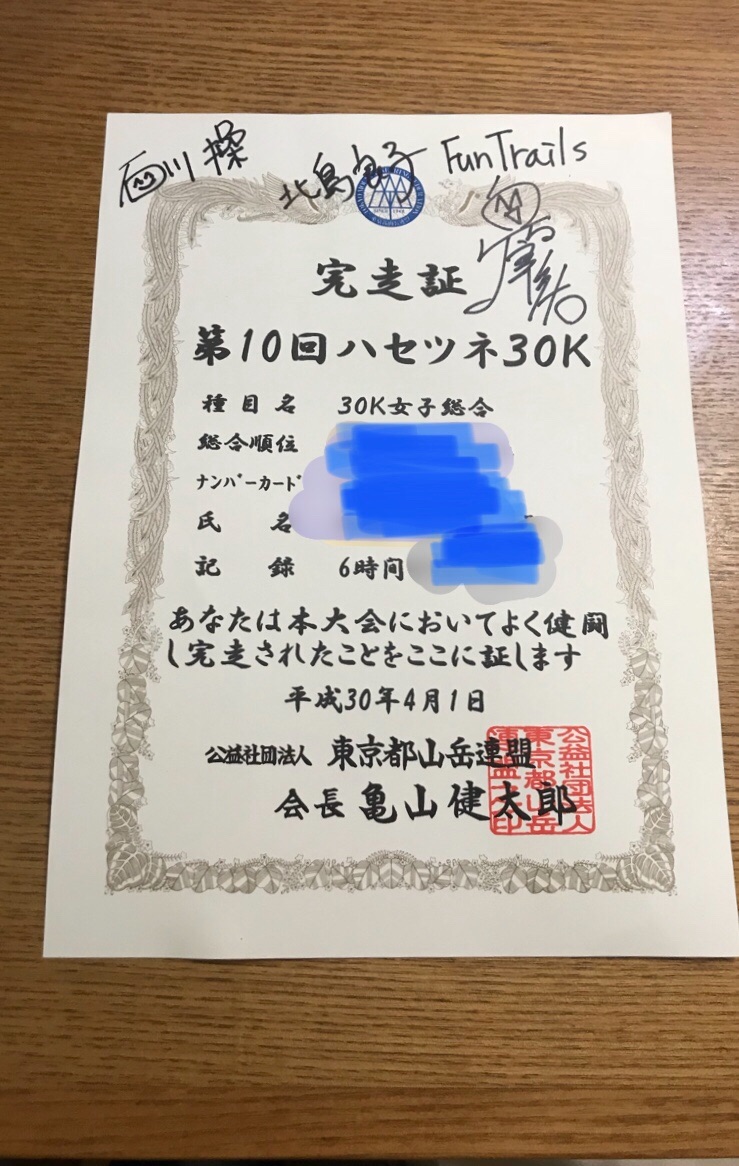 石川 操
北島良子
FunTrails
完走証
第10回ハセツネ30K
種目名 30K女子総合
総合順位
ナンバーカード
氏 名
記 録 6時間
あなたは本大会においてよく健闘
し完走されたことをここに証します
平成30年4月1日
公益社団法人 東京都山岳連盟
会長 亀山健太郎